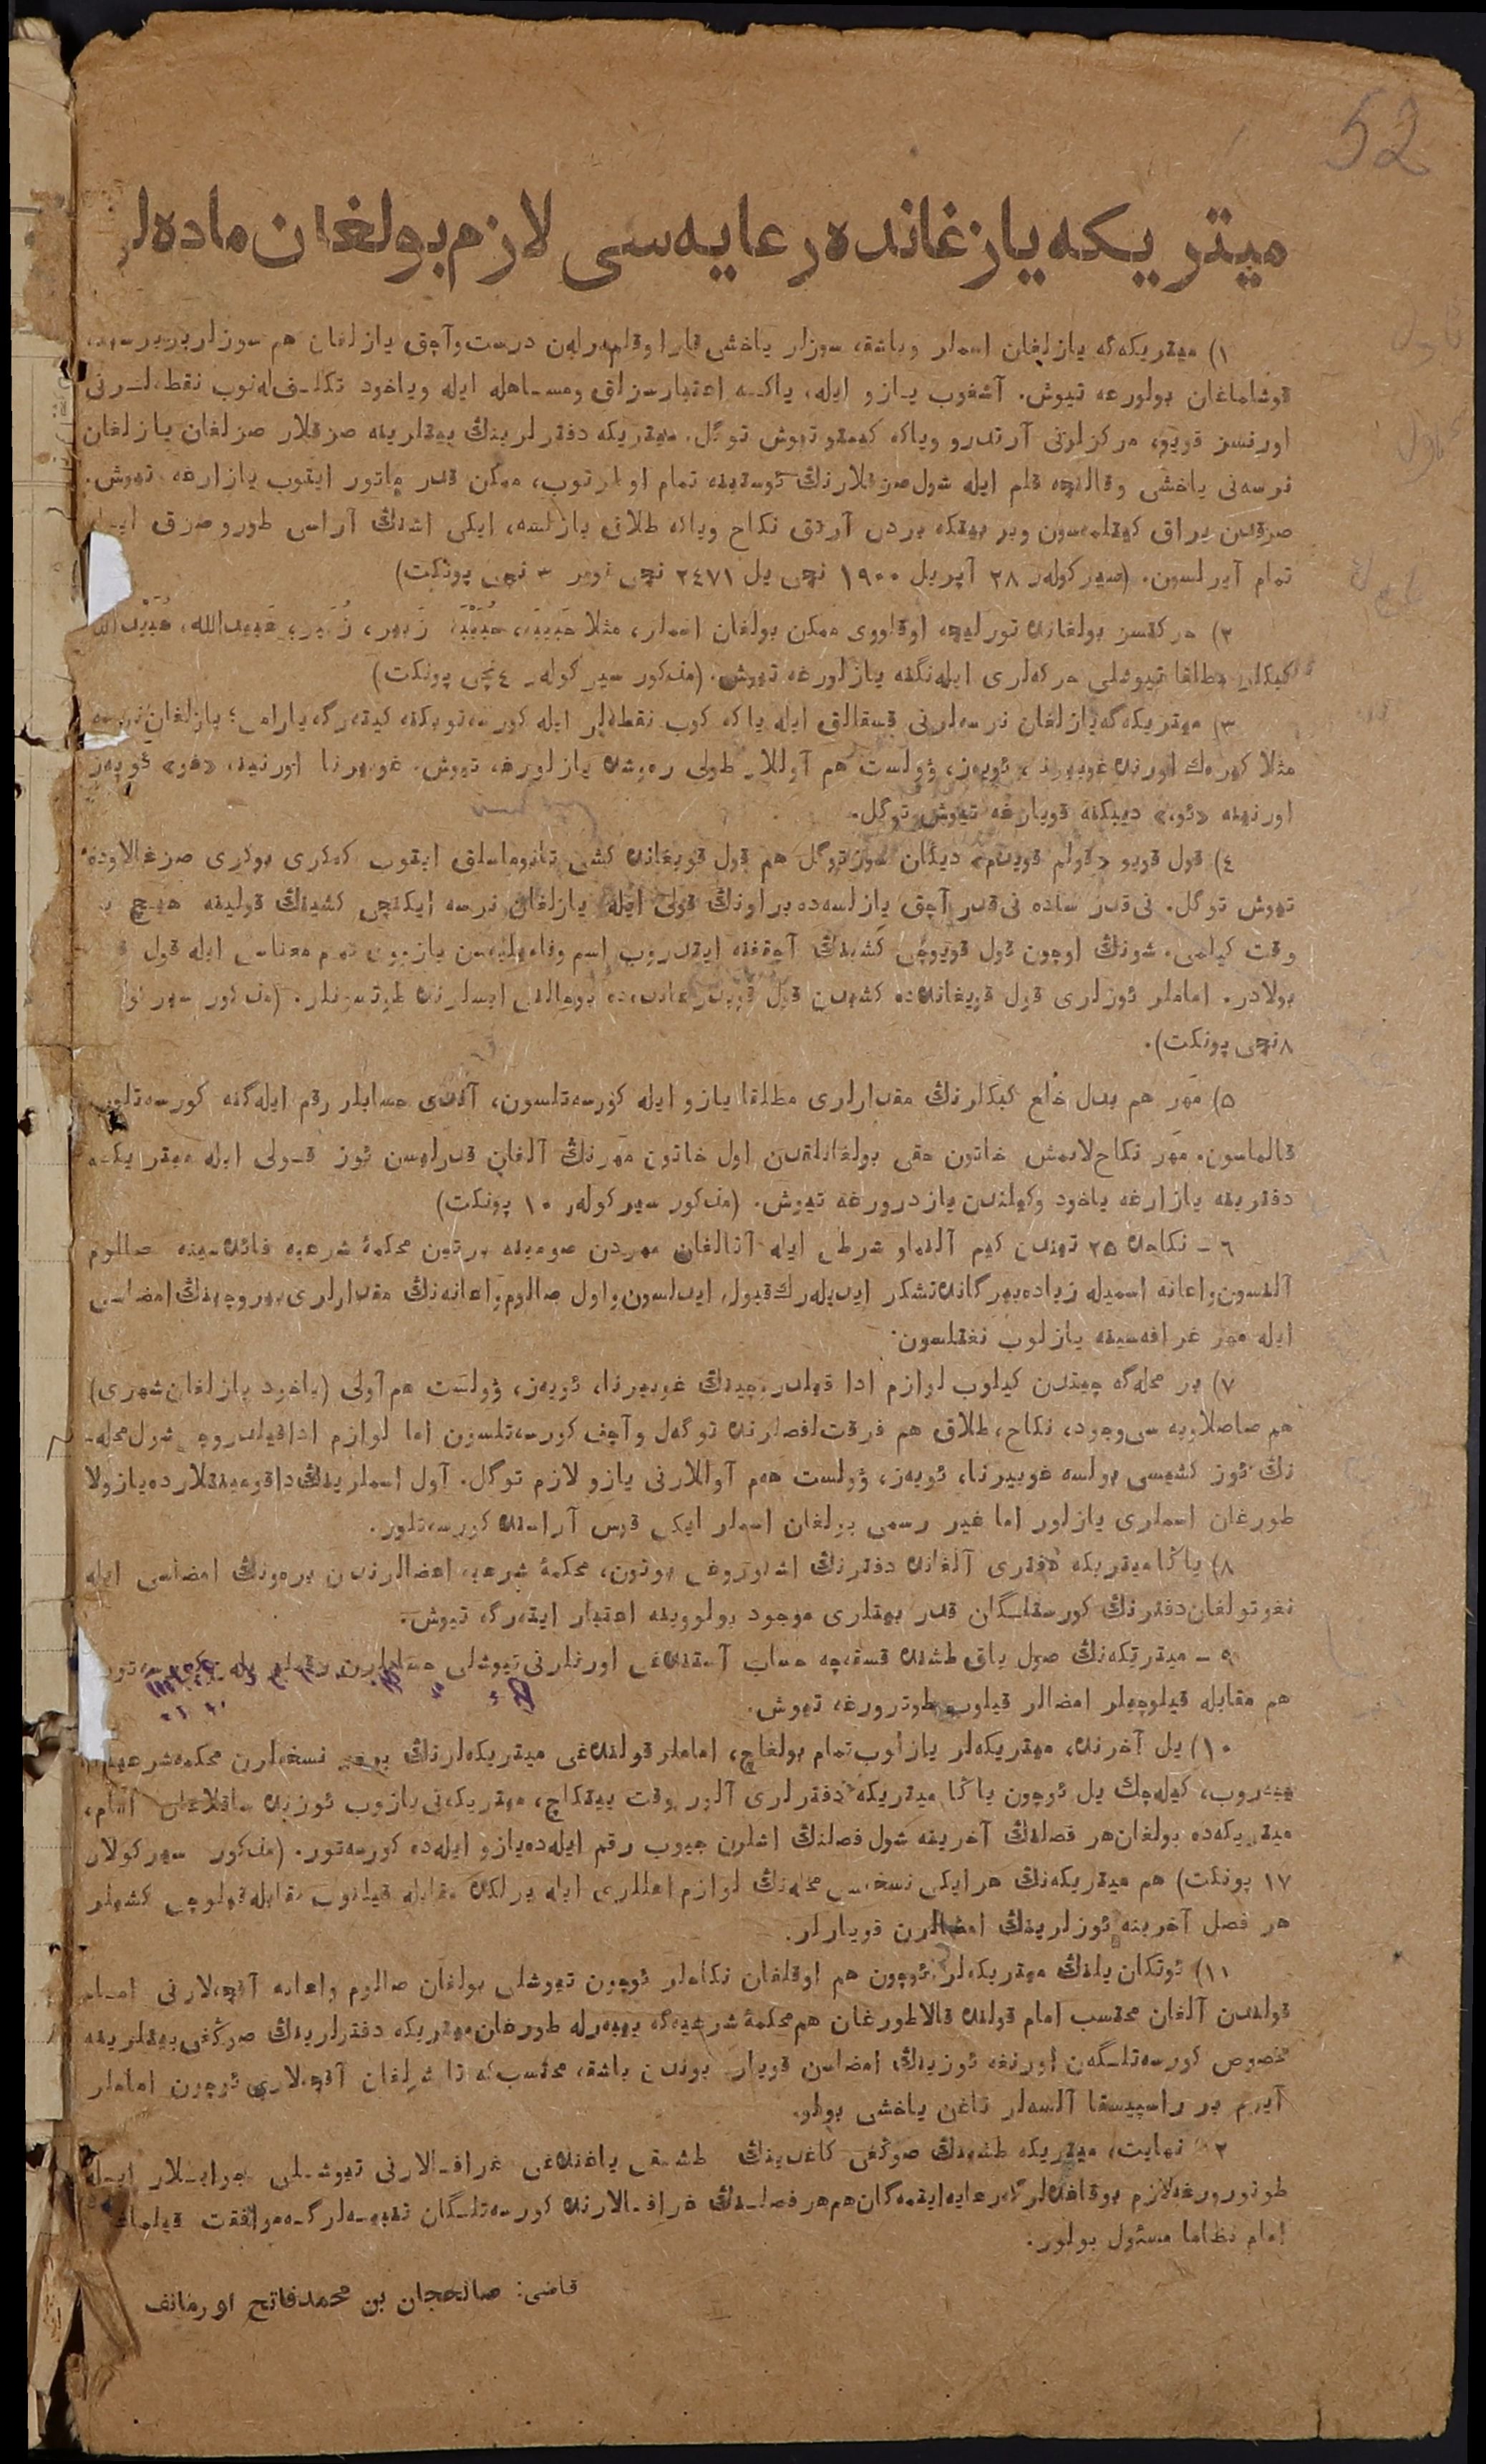 52
میتریکه یازغانده رعایه‌سی لازم بولغان ماده‌لر
۱) میتریکه‌گه یازلغان اسملر وباشقه سوزلر یاخشی قارا وقلم‌برله‌ن درست وآچق یازلغان هم سوزلر بربرسینه
قوشلماغان بولورغه تیوش. آشغوب یازو ایله، یاکه اعتبارسزلق ومساهله ایله ویاخود تکلف‌له‌نوب نقطه‌لرنی
اورنسز قویو، مرکزلرنی آرتدرو ویاکه کیمتو تیوش توگل. میتریکه دفترلرینڭ بیتلرینه صزقلار صزلغان یازلغان
نرسه‌نی یاخشی وقالنچه قلم ایله شول صزقلارنڭ ئوستینه تمام اولرتوب، ممکن قدر ماتور ایتوب یازارغه تیوش.
صزقدن یراق کیتلمه‌سون وبر بیتکه بردن آرتق نکاح ویاکه طلاق یازلسه، ایکی اشنڭ آراسی طورو صزق ایله
تمام آیرلسون. (سیرکولر ۲۸ آپریل ۱۹۰۰ نچی یل ۲٤۷۱ نچی نومر ۳ نچی پونکت)
۲) حرکه‌سز بولغانده تورلیچه اوقلووی ممکن بولغان اسملر، مثلا حَبیبَه، حُبَیْبَه زَبیر، زُبَیر، عَبیدالله، عُبَیْدالله
کبکلر مطلقا تیوشلی حرکه‌لری ایله‌نگنه یازلورغه تیوش. (مذکور سیرکولر ٤ نچی پونکت)
۳) میتریکه‌گه یازلغان نرسه‌لرنی قسقالق ایله یاکه کوب نقطه‌لر ایله کورسه‌توبکنه کیته‌رگه یارامی؛ یازلغان نرسه
مثلا کیره‌ك اورنده غوبیرنا، ئویه‌ز، ۋولست هم آوللار طولی ره‌وشده یازلورغه تیوش. غوبیرنا اورنینه «غو» ئویه‌ز
اورنینه «ئو،» دیبکنه قویارغه تیوش توگل.
٤) قول قویو «قولم قویدم» دیگان سوز توگل هم قول قویغانده کشی تانوماسلق ایتوب که‌کری بوکری صزغالاوده
تیوش توگل. نی‌قدر ساده نی‌قدر آچق یازلسه‌ده براونڭ قولی ایله یازلغان نرسه ایکنچی کشینڭ قولینه هیچ
وقت کیلمی. شونڭ اوچون قول قویوچی کشینڭ آچقغنه ایتدروب اسم وفامیلیه‌سن یازووی تمام معناسی ایله قول
بولادر. اماملر ئوزلری قول قویغانده‌ده کشیدن قول قویدرغانده‌ده بومالنی ایسلرنده طوتسونلر. (مذکور سیرکولر
۸ نچی پونکت).
۵) مَهر هم بدل خُلع کبکلرنڭ مقدارلری مطلقا یازو ایله کورسه‌تلسون، آندی حسابلر رقم ایله‌گنه کورسه‌تلوب
قالماسون. مَهر نکاح‌لانمش خاتون حقی بولغانلقدن اول خاتون مَهرنڭ آلغان قدرلیسن ئوز قولی ایله میتریکه
دفترینه یازارغه یاخود وکیلندن یازدرورغه تیوش. (مذکور سیرکولر ۱۰ پونکت)
٦ ـ نکاحده ۲۵ تیندن کیم آلنماو شرطی ایله آتالغان مهردن صومینه برتین محکمهٔ شرعیه فائده‌سینه صالوم
آلنسون واعانه اسمیله زیاده بیرگانده تشکر ایدیله‌رك قبول ایدلسون واول صالوم واعانه‌نڭ مقدارلری بیروچینڭ امضاسی
ایله مهر غرافه‌سینه یازلوب نغتلسون.
۷) بر محله‌گه چیتدن کیلوب لوازم ادا قیلدروچینڭ غوبیرنا، ئویه‌ز، ۋولست هم آولی (یاخود یازلغان شهری)
هم صاصلاویه سی وجود، نکاح، طلاق هم فرقت فصلرنده توگه‌ل وآچق کورسه‌تلسون اما لوازم اداقیلدروچی شول محله‌ـ
نڭ ئوز کشیسی بولسه غوبیرنا، ئویه‌ز، ۋولست هم آوللارنی یازو لازم توگل. آول اسملرینڭ داقومینتلارده یازولا
طورغان اسملری یازلور اما غیر رسمی بولغان اسملر ایکی قوس آراسنده کورسه‌تلور.
۸) یاڭا میتریکه دفتری آلغانده دفترنڭ اشلوروغی بوتون، محکمهٔ شرعیه اعضالرندن بره‌ونڭ امضاسی ایله
نغوتولغان دفترنڭ کورستلگان قدر بیتلری موجود بولووینه اعتبار ایته‌رگه تیوش.
۹ ـ میتریکه‌نڭ صول یاق طشنده قسقه‌چه حساب آستنده‌غی اورنلرنی تیوشلی حسابلرن رقملر ایله
هم مقابله قیلوچیلر امضالر قیلوب طوترورغه تیوش.
۱۰) یل آخرنده، میتریکه‌لر یازلوب تمام بولغاچ، اماملر قولنده‌غی میتریکه‌لرنڭ بر نسخه‌لرن محکمه شرعیه‌گه
بیه‌روب، کیله‌چك یل ئوچون یاڭا میتریکه دفترلری آلور وقت ییتکاچ، میتریکه‌نی یازوب ئوزنده ساقلاغان امام،
میتریکه‌ده بولغان هر فصلنڭ آخرینه شول فصلنڭ اشلرن جیوب رقم ایله‌ده یازو ایله‌ده کورسه‌تور. (مذکور سیرکولار
۱۷ پونکت) هم میتریکه‌نڭ هر ایکی نسخه‌سی محله‌نڭ لوازم اهللری ایله برلکده مقابله قیلنوب مقابله قیلوچی کشیلر
هر فصل آخرینه ئوزلرینڭ امضالرن قویارلر.
۱۱) ئوتکان یلنڭ میتریکه‌لر ئوچون هم اوقلغان نکاحلر ئوچون تیوشلی بولغان صالوم واعانه آقچه‌لارنی امام
قولندن آلغان محتسب امام قولنده قالاطورغان هم محکمهٔ شرعیه‌گه بیه‌رله طورغان میتریکه دفترلرینڭ صوڭغی بیتلرینه
مخصوص کورسه‌تلگه‌ن اورنغه ئوزینڭ امضاسن قویار. بوندن باشقه، محتسب‌که تابشرلغان آقچه‌لاری ئوچون اماملر
آیرم بر راسپیسقا آلسه‌لر تاغن یاخشی بولور.
۱۲) نهایت، میتریکه طشینڭ صوڭغی کاغدینڭ طشقی یاغنده‌غی غرافالارنی تیوشلی جوابلار ایله
طوتورورغه لازم بوقاعده‌لرگه رعایه ایتمه‌گان هم هر فصلنڭ غرافالارنده کورسه‌تلگان تنبیه‌لرگه موافقت قیلماغان
امام نظاما مسئول بولور.
قاضی: صالحجان بن محمدفاتح اورمانف